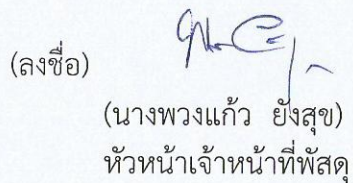 (ลงชื่อ)
(นางพวงแก้ว ยังสุข)
หัวหน้าเจ้าหน้าที่พัสดุ